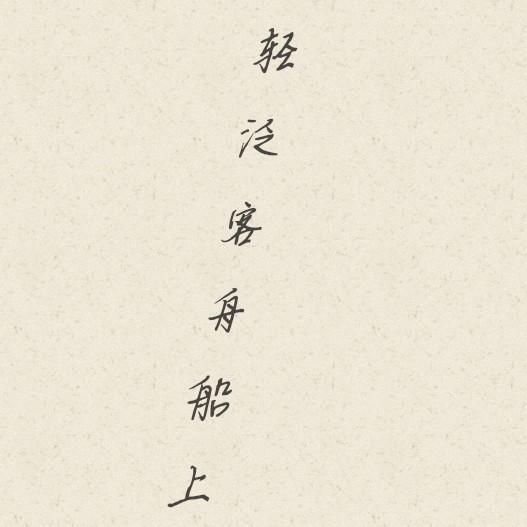 轻泛客舟船上